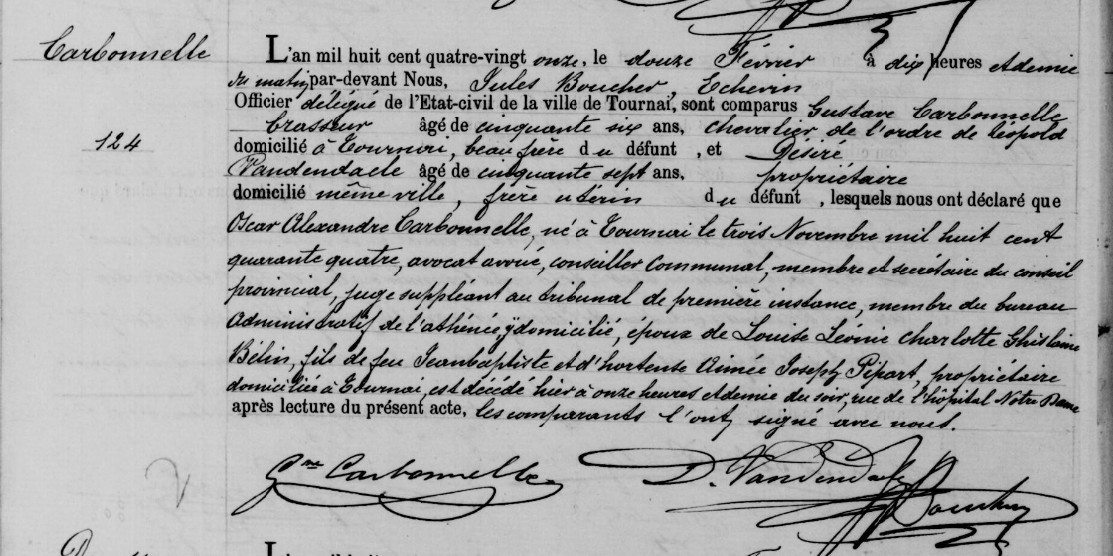 Carbonnelle
124
L'an mil huit cent quatre-vingt onze, le douze Février à dix heures et demie
du matin par-devant Nous, Jules Boucher, Echevin
Officier délégué de l'Etat-civil de la ville de Tournai, sont comparus Gustave Carbonnelle
brasseur âgé de cinquante six ans, chevalier de l'ordre de Léopold
domicilié à Tournai, beau frère du défunt , et Désiré
Vandendaele âgé de cinquante sept ans, propriétaire
domicilié même ville, frère utérin du défunt , lesquels nous ont déclaré que
Oscar Alexandre Carbonnelle, né à Tournai le trois Novembre mil huit cent
quarante quatre, avocat avoué, conseiller communal, membre et secrétaire du conseil
provincial, juge suppléant au tribunal de première instance, membre du bureau
administratif de l'athénée ÿ domicilié, époux de Louise Léonie Charlotte Ghislaine
Bélin, fils de feu Jean baptiste et d'hortense Aimée Joseph Pipart, propriétaire
domiciliée à Tournai, est décédé hier à onze heures et demie du soir, rue de l'hôpital Notre Dame
après lecture du présent acte, les comparants l'ont signé avec nous.
Gve Carbonnelle D. Vandendaele J Boucher
L'an mil huit